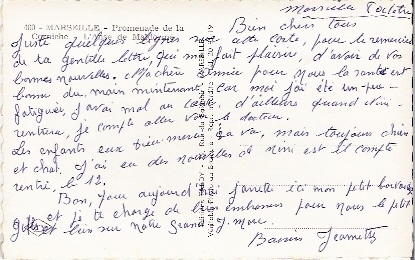 Marseille
400 - MARSEILLE - Promenade de la
Corniche - L'Anse de
Bien chers tous
Juste quelques lignes sur cette carte, pour te remercier
de ta gentille lettre, qui m'a fait plaisir, d'avoir de vos
bonnes nouvelles. Ma chère pour nous la santé est
bonne du, main maintenant, car moi j'ai été un peu
fatiguée, j'avais mal au d'ailleurs quand Mimi
rentrera, je compte aller voir le docteur.
Les enfants eux Dieu merci ça va, mais toujours chien
et chat. J'ai eu des nouvelles de Mimi est il compte
rentré, le 12.
Bon, pour aujourd'hui j'arrête ici mon petit bavardage
et je te charge de bien embrasser pour nous le petit
et bien sur notre grand
Baisers Jeannette